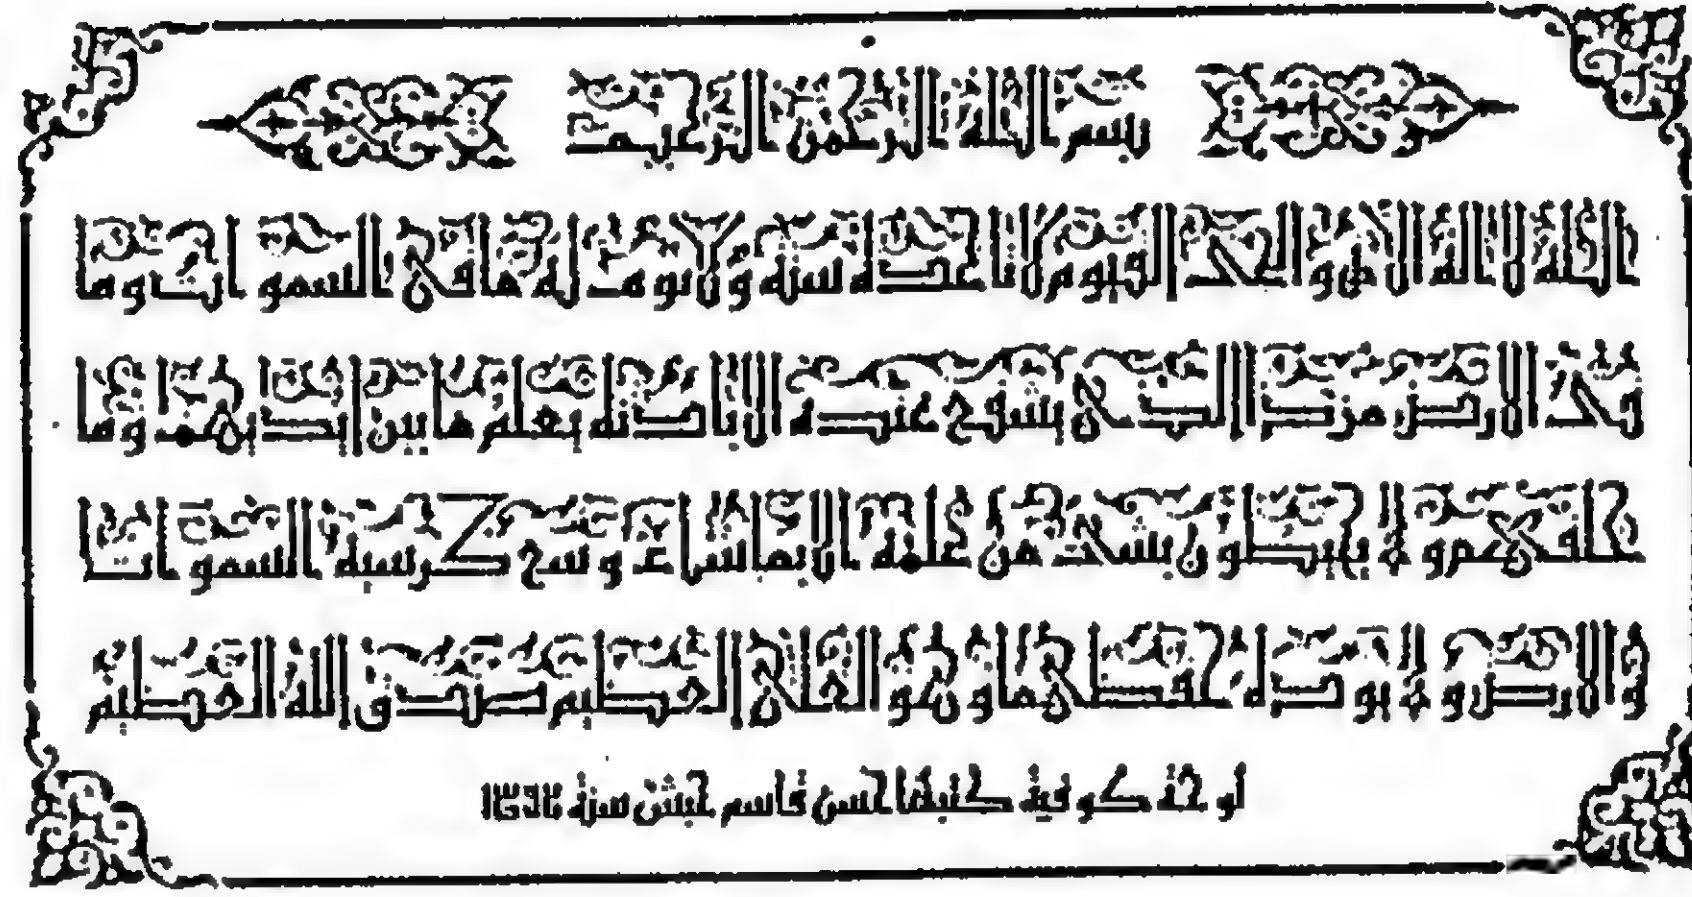 بسم الله الرحمن الرحيم
الله لا اله الا هو الحي القيوم لا تأخذه سنة ولا نوم له ما في السموات وما
في الارض من ذا الذي يشفع عنده الا باذنه يعلم ما بين ايديهم وما
خلفهم ولا يحيطون بشيء من علمه الا بما شاء وسع كرسيه السموات
والارض ولا يؤده حفظهما وهو العلي العظيم صدق الله العظيم
لوحة كوفية كتبها حسن قاسم حبش سنة ١٣٩٢